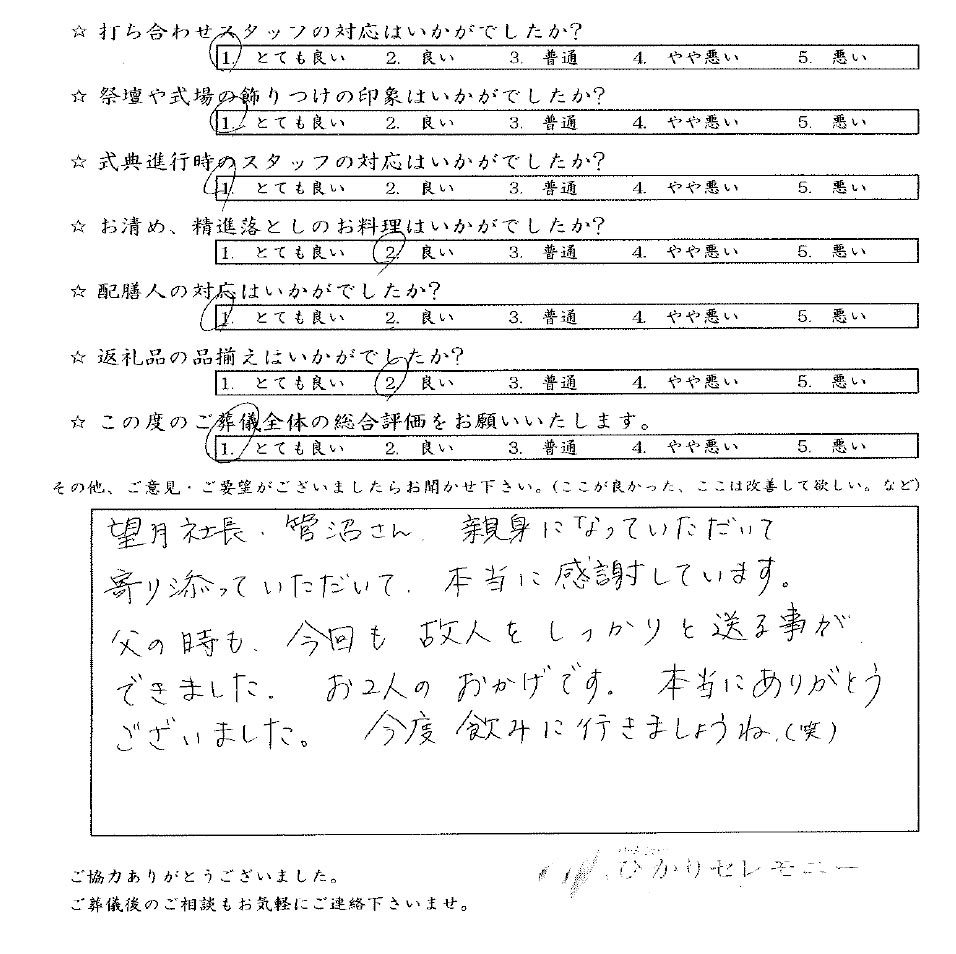 ☆ 打ち合わせスタッフの対応はいかがでしたか?
1. とても良い 2. 良い 3. 普通 4. やや悪い 5. 悪い
☆ 祭壇や式場の飾りつけの印象はいかがでしたか?
1. とても良い 2. 良い 3. 普通 4. やや悪い 5. 悪い
☆ 式典進行時のスタッフの対応はいかがでしたか?
1. とても良い 2. 良い 3. 普通 4. やや悪い 5. 悪い
☆ お清め、精進落としのお料理はいかがでしたか?
1. とても良い 2. 良い 3. 普通 4. やや悪い 5. 悪い
☆ 配膳人の対応はいかがでしたか?
1. とても良い 2. 良い 3. 普通 4. やや悪い 5. 悪い
☆ 返礼品の品揃えはいかがでしたか?
1. とても良い 2. 良い 3. 普通 4. やや悪い 5. 悪い
☆ この度のご葬儀全体の総合評価をお願いいたします。
1. とても良い 2. 良い 3. 普通 4. やや悪い 5. 悪い
その他、ご意見・ご要望がございましたらお聞かせ下さい。(ここが良かった、ここは改善して欲しい。など)
望月社長・菅沼さん、親身になっていただいて
寄り添っていただいて、本当に感謝しています。
父の時も、今回も故人をしっかりと送る事が
できました。お2人のおかげです。本当にありがとう
ございました。今度飲みに行きましょうね、(笑)
ひかりセレモニー
ご協力ありがとうございました。
ご葬儀後のご相談もお気軽にご連絡下さいませ。